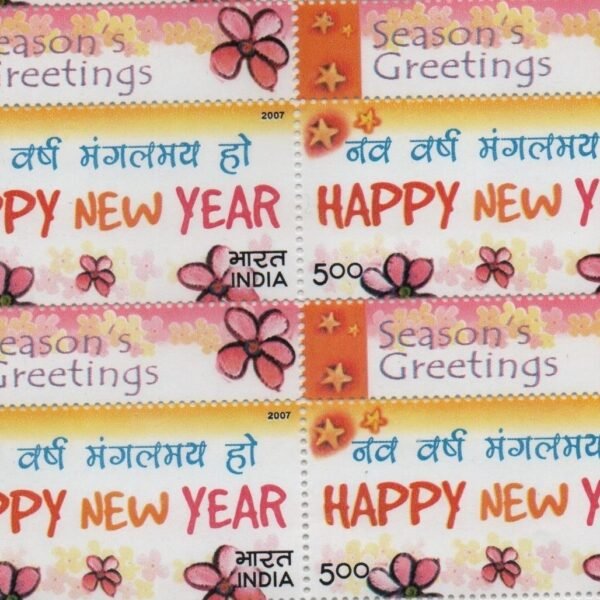 Season's Season's
Greetings Greetings
2007
वर्ष मंगलमय हो नव वर्ष मंगलमय
NEW YEAR HAPPY NEW
भारत
INDIA 500
Season's
Greetings Greetings
2007
वर्ष मंगलमय हो नव वर्ष मंगलमय
NEW YEAR HAPPY NEW
भारत
INDIA 500